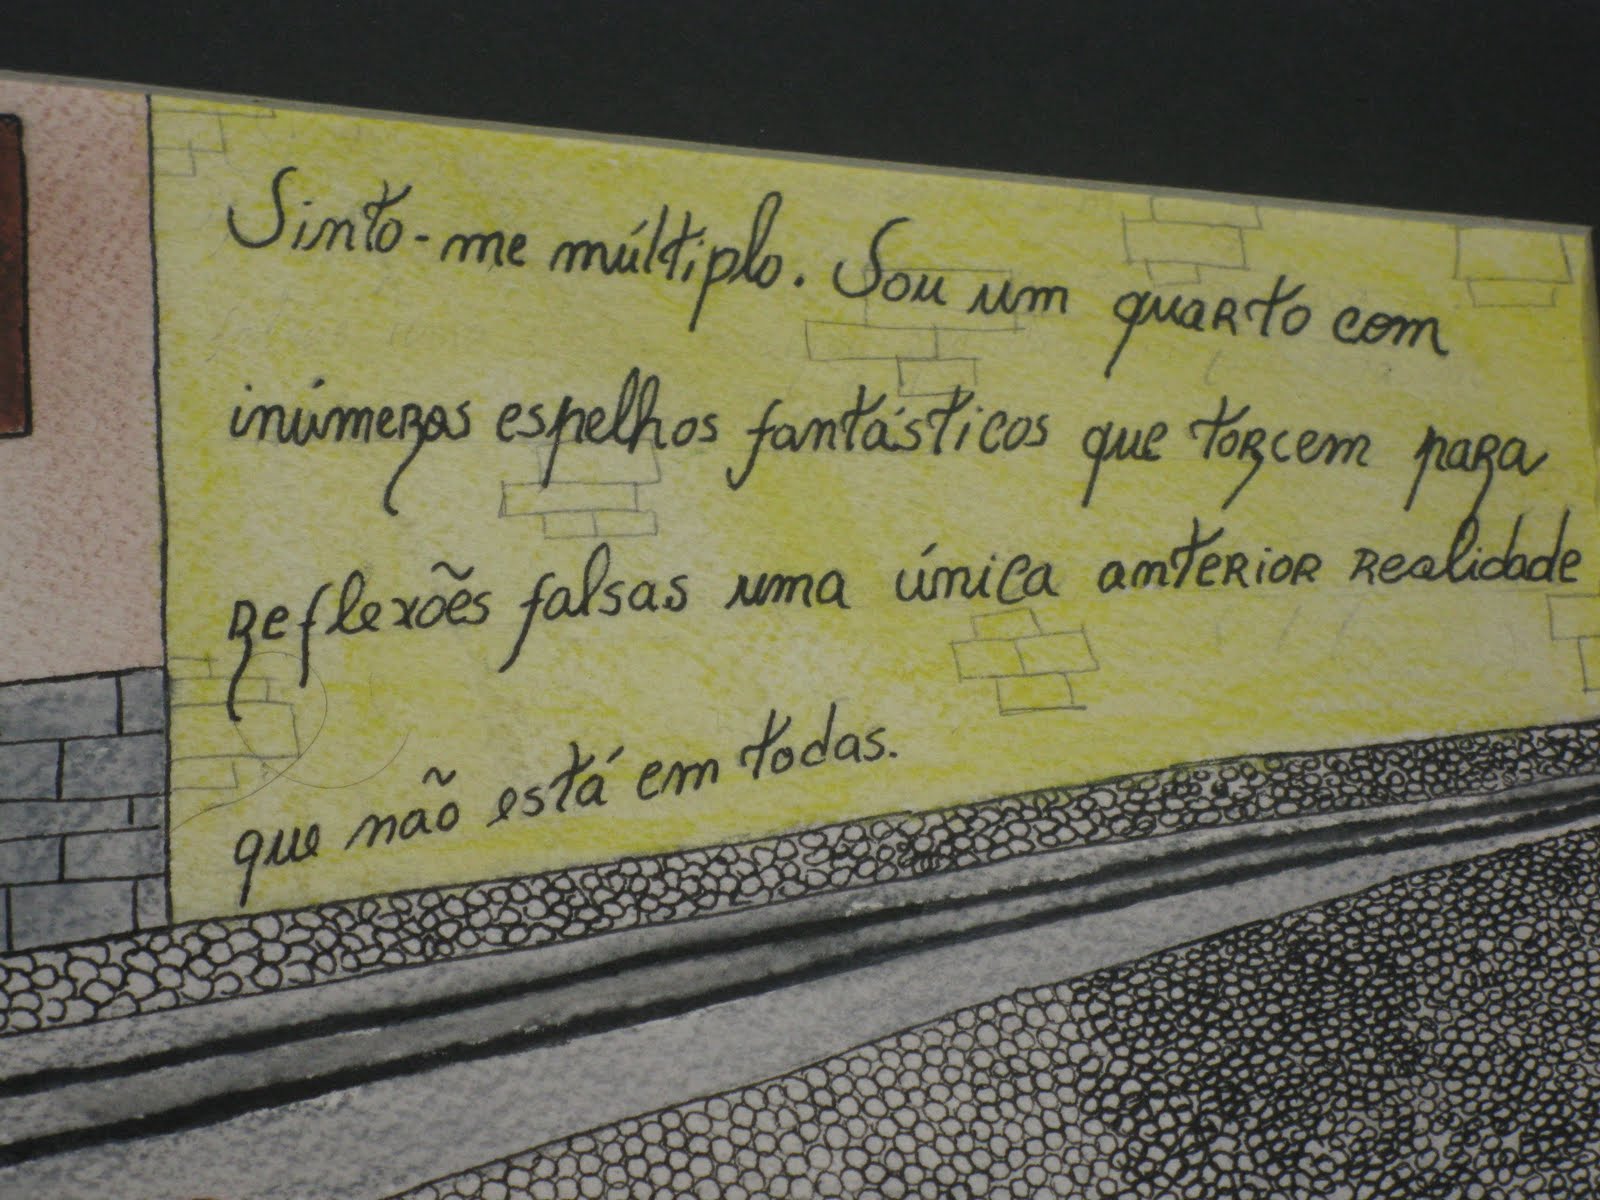 Sinto-me múltiplo. Sou um quarto com
inúmeros espelhos fantásticos que torcem para
reflexões falsas uma única anterior realidade
que não está em todas.